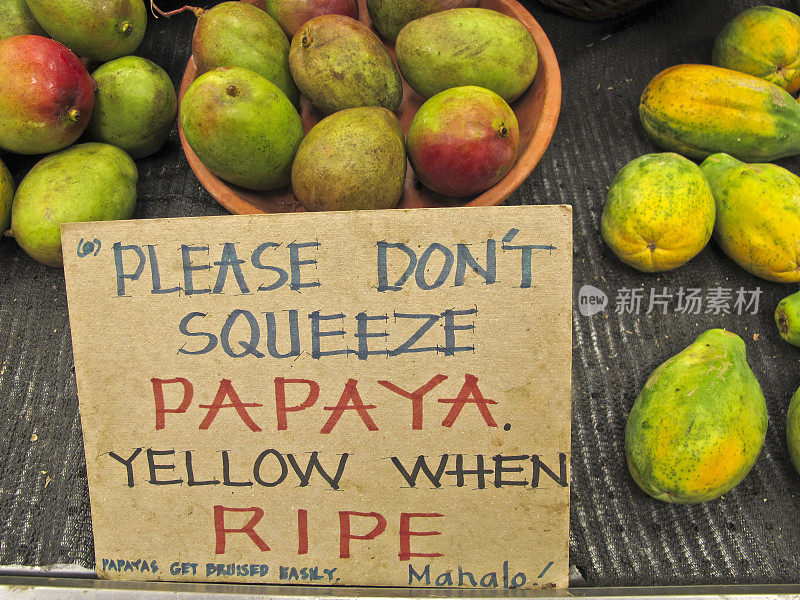 PLEASE DON'T
SQUEEZE
PAPAYA.
YELLOW WHEN
RIPE
PAPAYAS GET BRUISED EASILY.
Mahalo!
new 新片素材